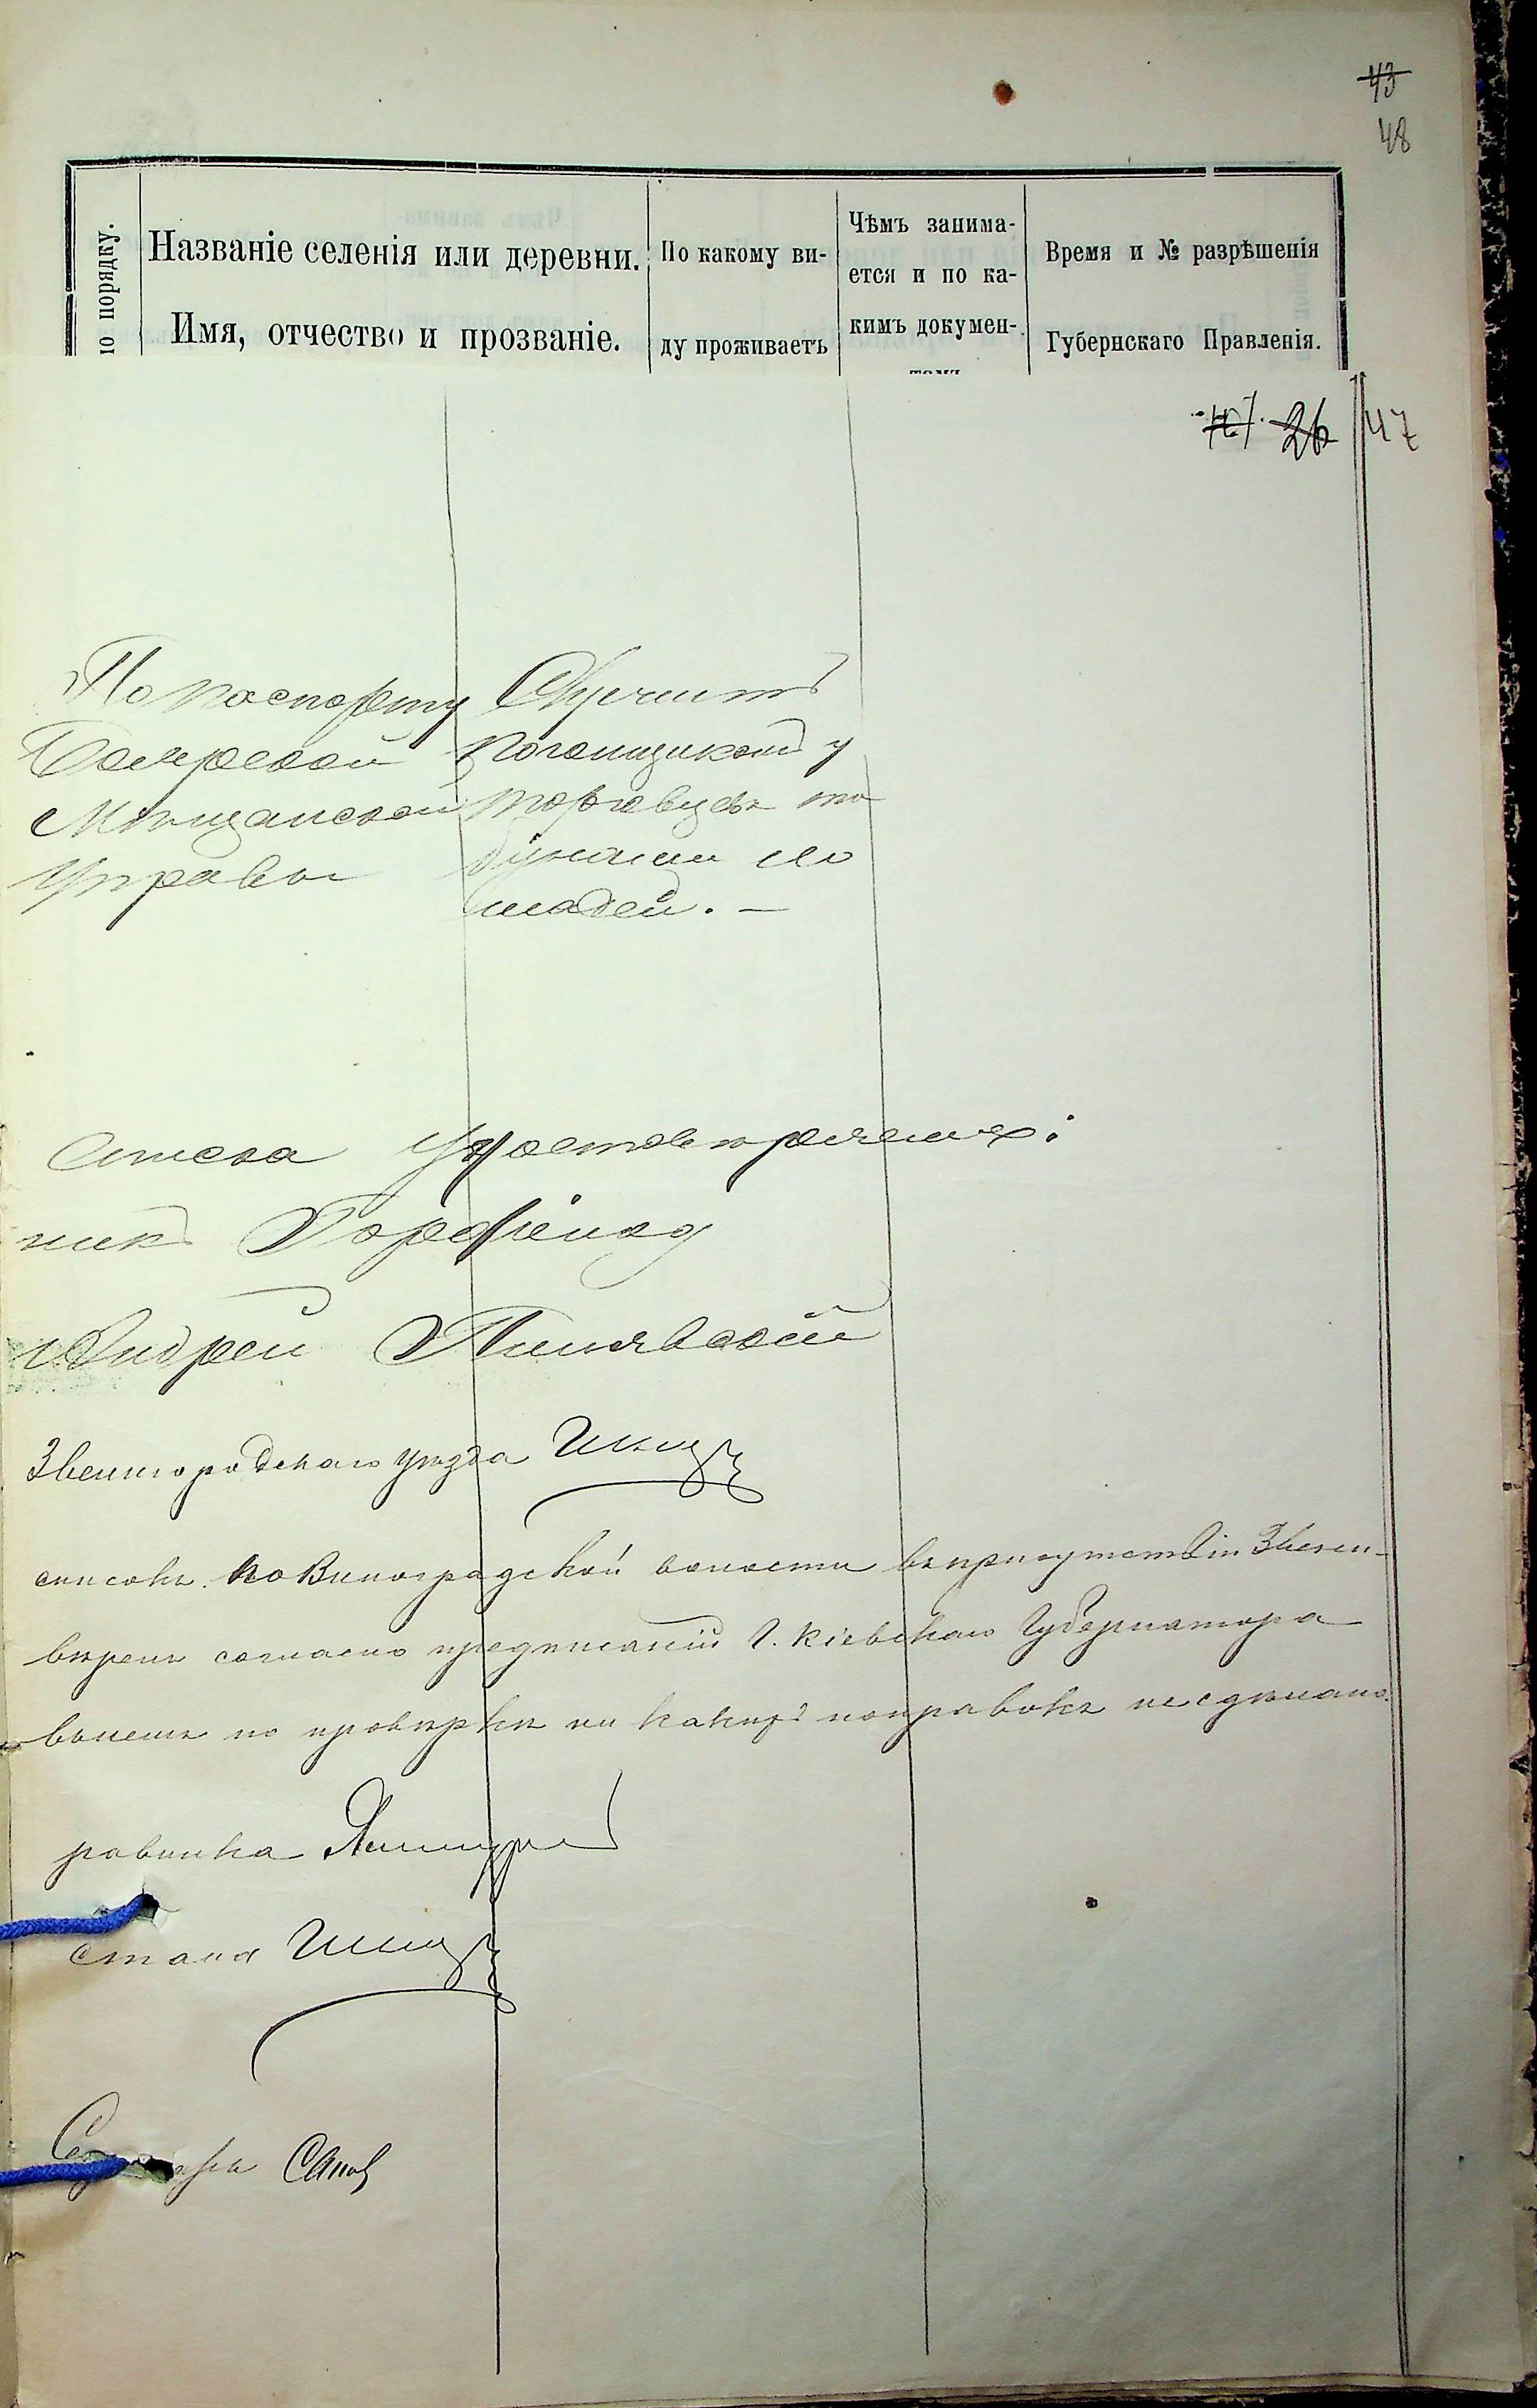 43
48
по порядку.
Названіе селенія или деревни.
Имя, отчество и прозваніе.
По какому ви-
ду проживаетъ
Чѣмъ занима-
ется и по ка-
кимъ докумен-
тамъ
Время и № разрѣшенія
Губернскаго Правленія.
26 47
По паспорту Служитъ
Боярской погонщикомъ у
Мѣщанской торговцевъ та
Управы бунами ло
шадей. —
списка удостовѣряемъ:
никъ
Андрей
Звенигородскаго уѣзда
списокъ по Виноградской волости въ присутствіи Звени-
вѣренъ согласно предписанія Г. Кіевскаго Губернатора
въ немъ по провѣркѣ ни какихъ поправокъ не сдѣлано.
равника
стана